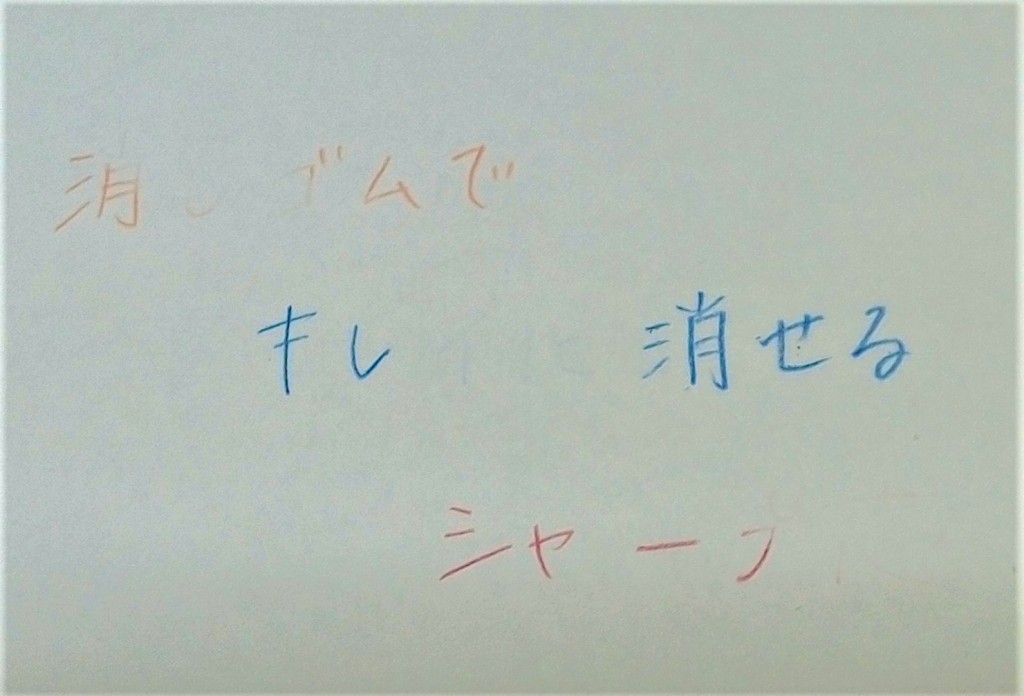 消しゴムで
キレ 消せる
シャー